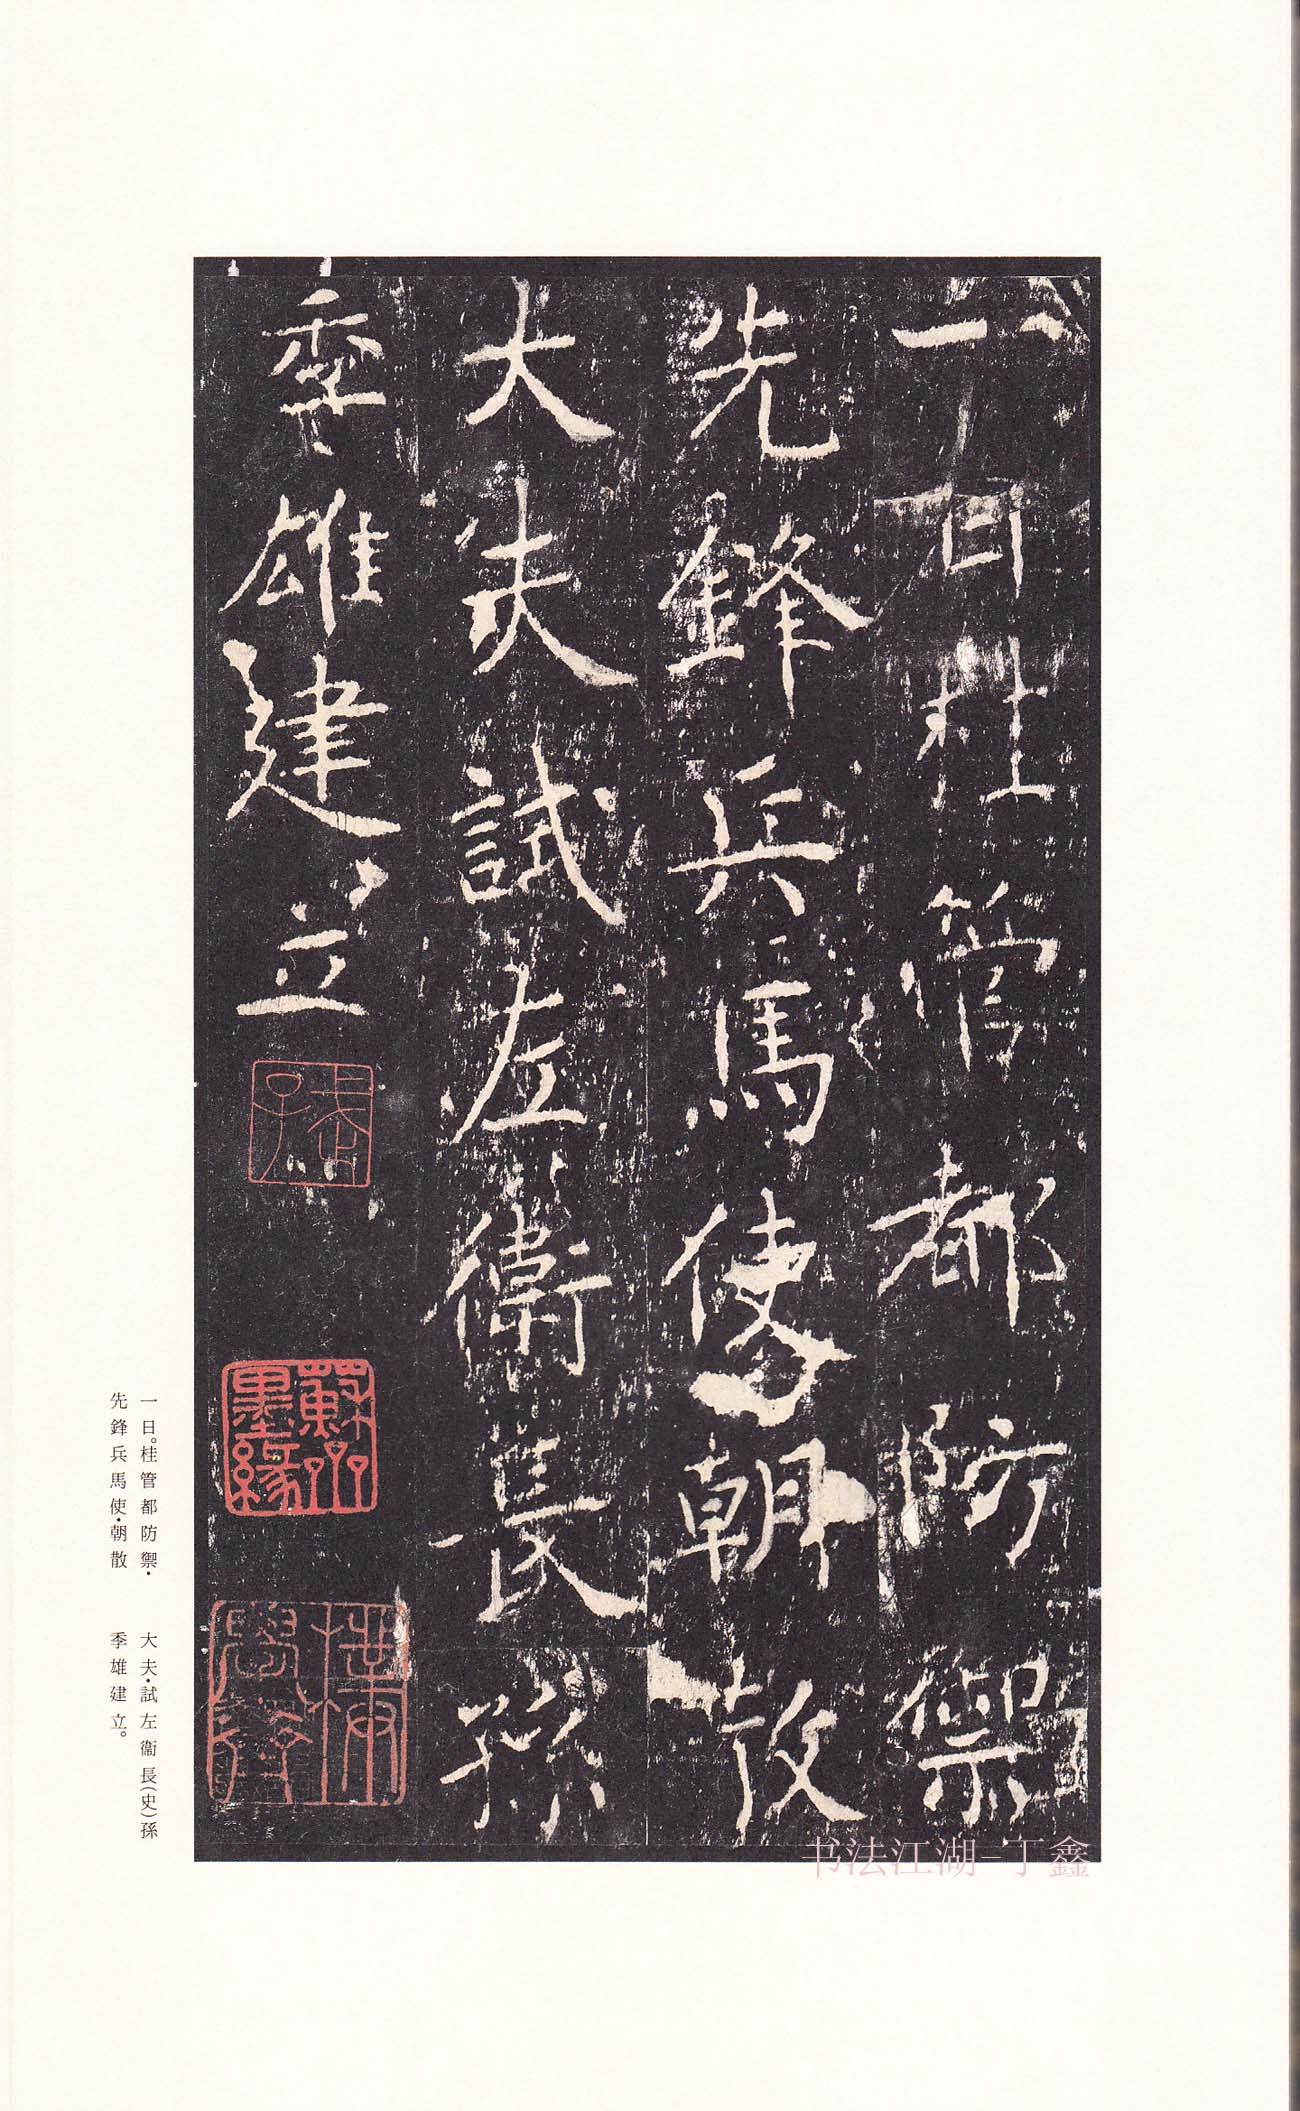 一日桂管都防禦
先鋒兵馬使朝散
大夫試左衞長孫
季雄建立
蘇齋墨緣
一日。桂管都防禦·
先鋒兵馬使·朝散
大夫·試左衞長(史)孫
季雄建立。
书法江湖-丁鑫